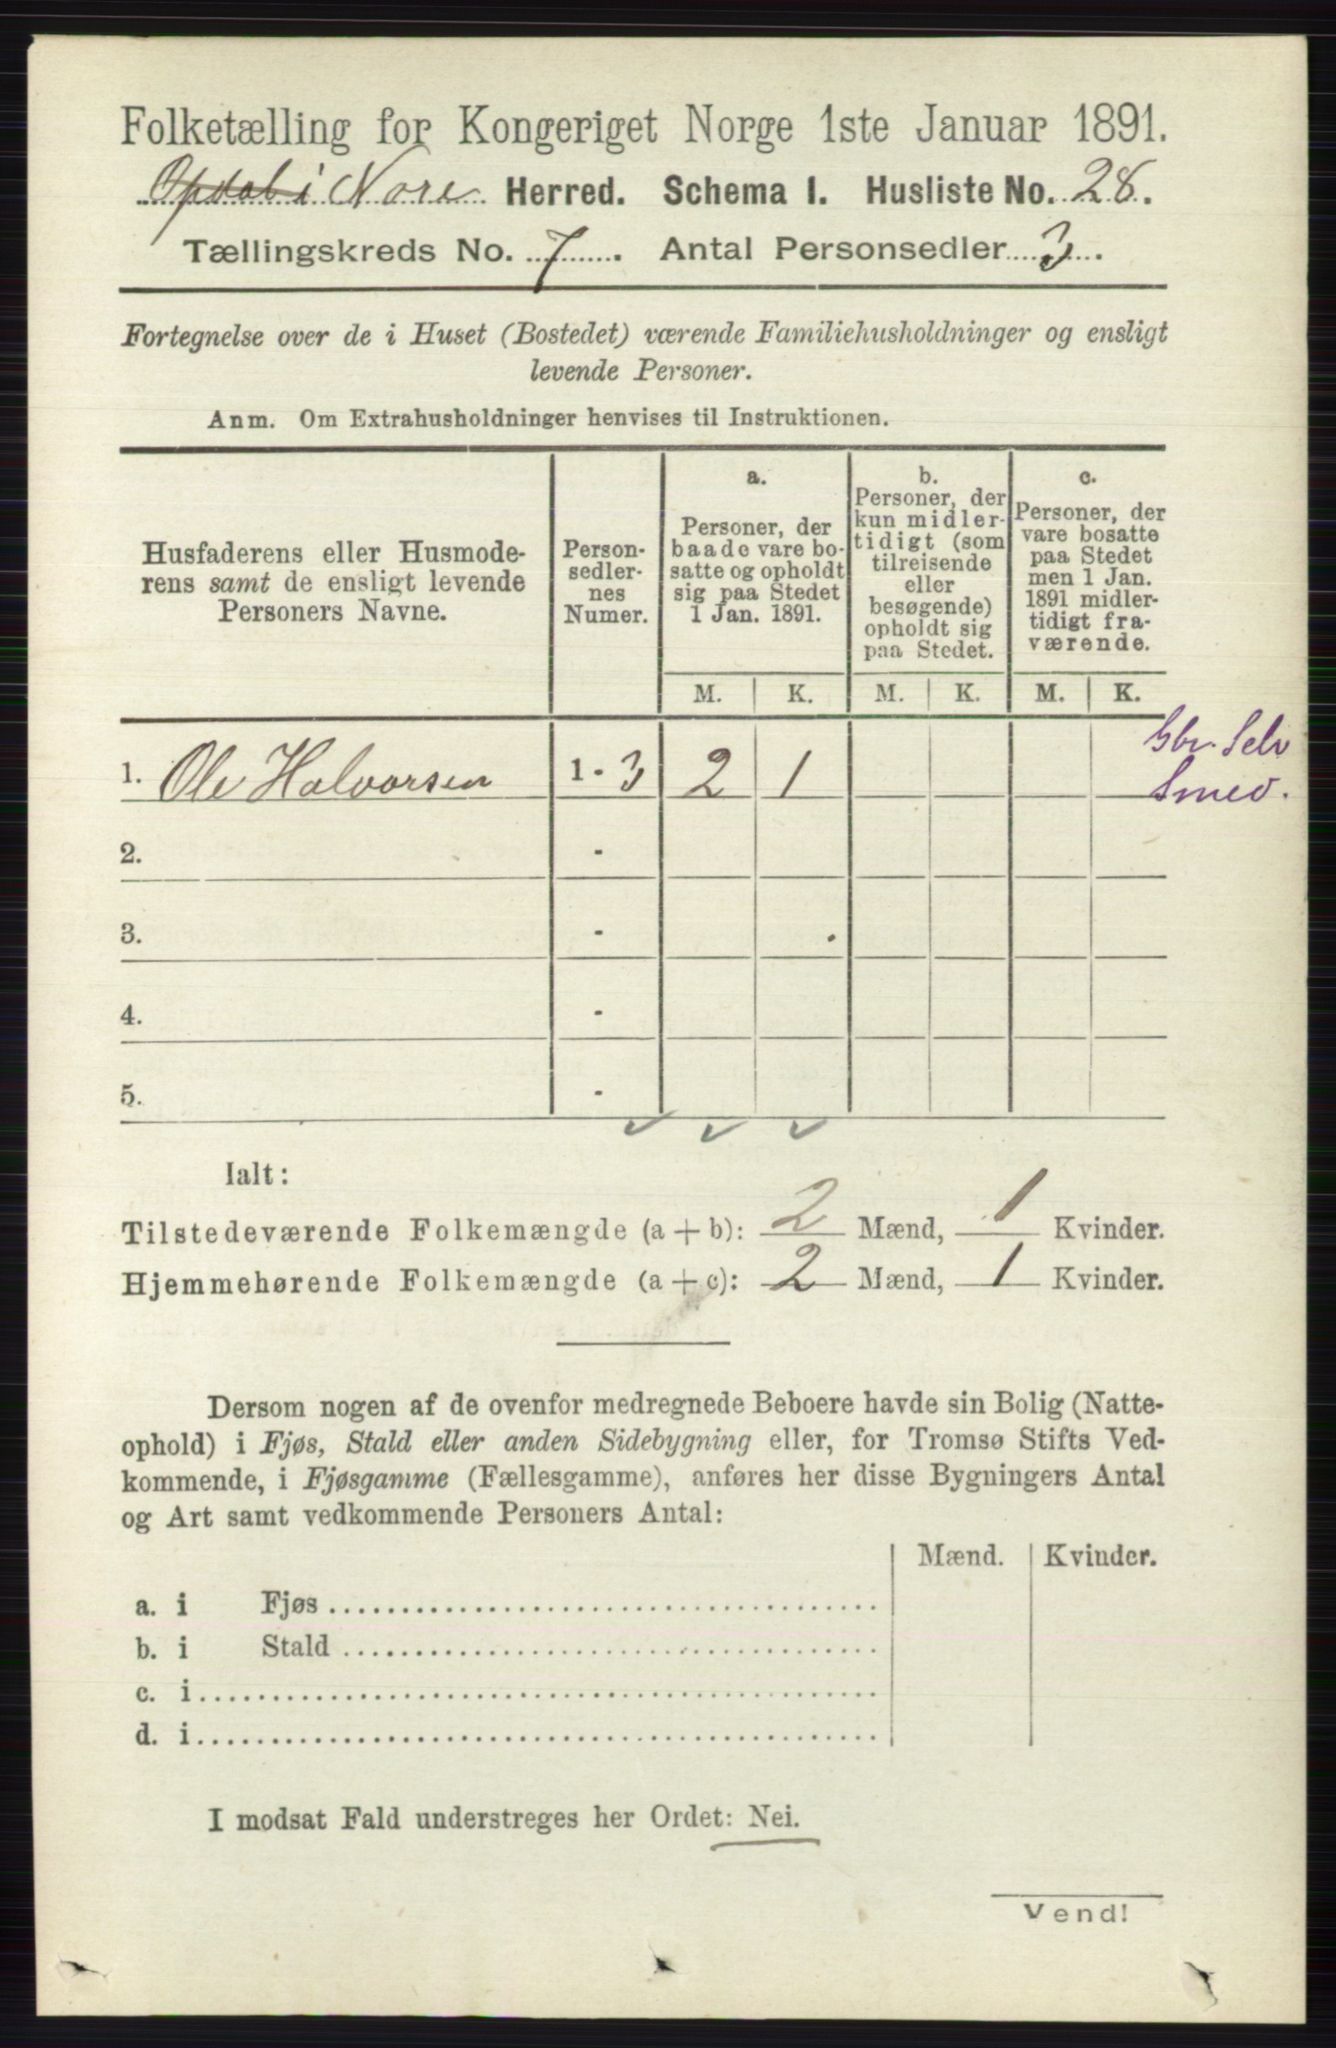 Folketælling for Kongeriget Norge 1ste Januar 1891.
Opdal i Nore Herred. Schema I. Husliste No. 28.
Tællingskreds No. 7. Antal Personsedler 3.
Fortegnelse over de i Huset (Bostedet) værende Familiehusholdninger og ensligt
levende Personer.
Anm. Om Extrahusholdninger henvises til Instruktionen.
Husfaderens eller Husmode-
rens samt de ensligt levende
Personers Navne.
Person-
sedler-
nes
Numer.
a.
Personer, der
baade vare bo-
satte og opholdt
sig paa Stedet
1 Jan. 1891.
b.
Personer, der
kun midler-
tidigt (som
tilreisende
eller
besøgende)
opholdt sig
paa Stedet.
c.
Personer, der
vare bosatte
paa Stedet
men 1 Jan.
1891 midler-
tidigt fra-
værende.
M. K. M. K. M. K.
1. Ole Halvorsen 1 - 3 2 1
Gbr. Selv
Smed.
2. -
3. -
4. -
5. -
Ialt:
Tilstedeværende Folkemængde (a + b): 2 Mænd, 1 Kvinder.
Hjemmehørende Folkemængde (a + c): 2 Mænd, 1 Kvinder.
Dersom nogen af de ovenfor medregnede Beboere havde sin Bolig (Natte-
ophold) i Fjøs, Stald eller anden Sidebygning eller, for Tromsø Stifts Ved-
kommende, i Fjøsgamme (Fællesgamme), anføres her disse Bygningers Antal
og Art samt vedkommende Personers Antal:
Mænd. Kvinder.
a. i Fjøs
b. i Stald
c. i
d. i
I modsat Fald understreges her Ordet: Nei.
Vend!